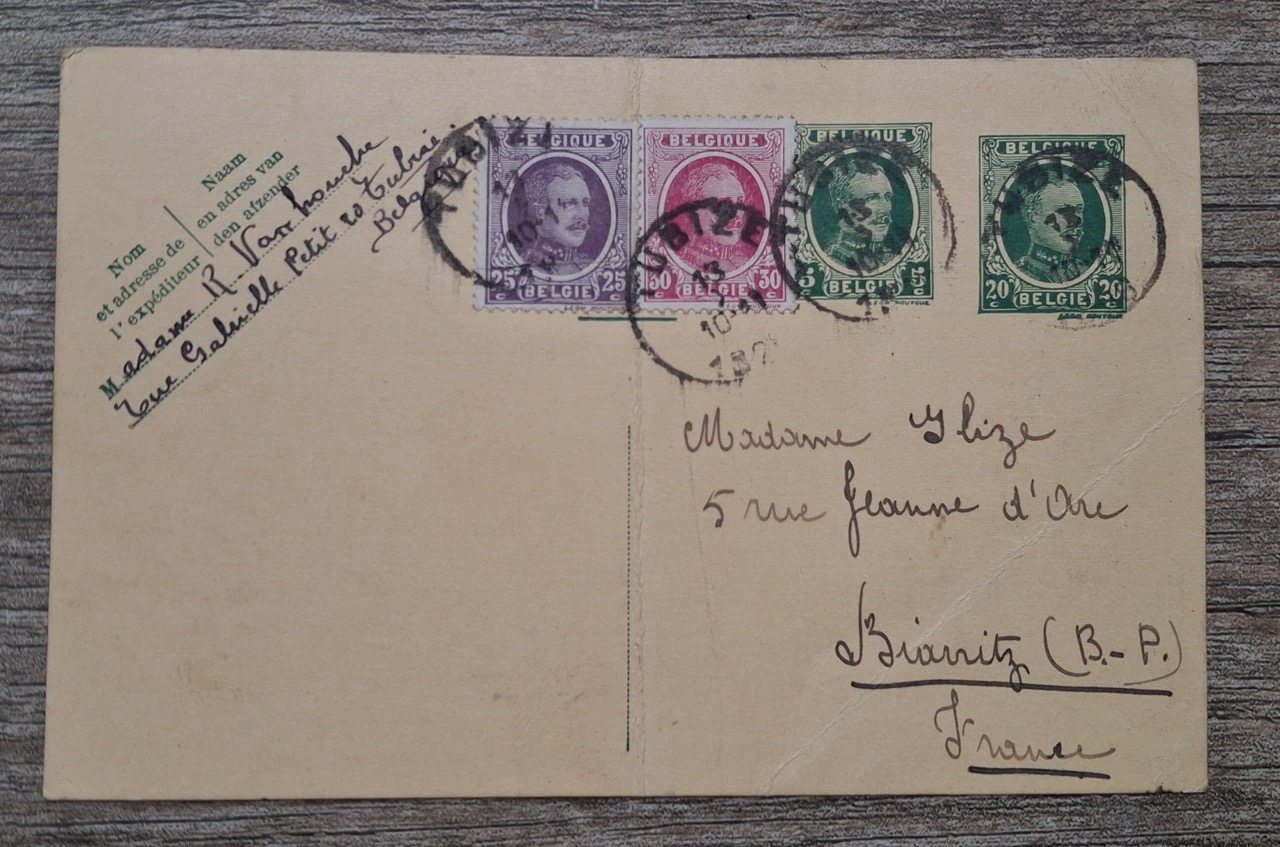 Nom
et adresse de
l'expéditeur
Naam
en adres van
den afzender
Madame R Vanhouche
rue Gabrielle Petit 20 Tubize
Belgique
BELGIQUE
25 c BELGIE 25 c
BELGIQUE
30 c BELGIE 30 c
BELGIQUE
5 c BELGIE 5 c
BELGIQUE
20 c BELGIE 20 c
TUBIZE
13
10-11
TUBIZE
13
10-11
TUBIZE
13
TUBIZE
13
Madame Glize
5 rue Jeanne d'Arc
Biarritz (B.-P.)
France